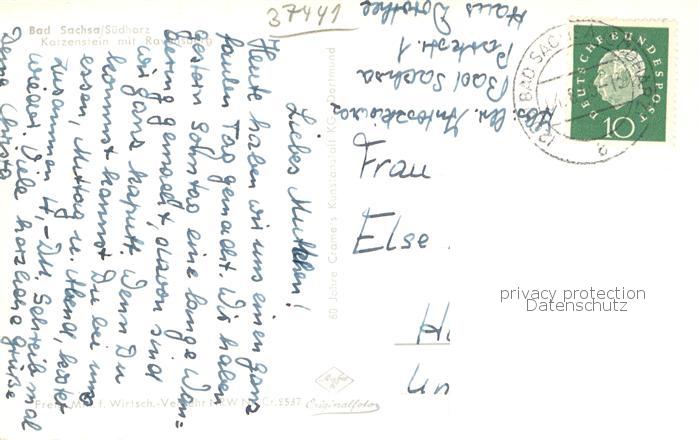 37441
Bad Sachsa/Südharz
Katzenstein mit Ravensberg
Liebes Muttchen!
Heute haben wir uns einen ganz
faulen Tag gemacht. Wir haben
gestern Samstag eine lange Wan=
derung gemacht, davon sind
wir ganz kaputt. Wenn Du
kommst kannst Du bei uns
essen, Mittag u. Abend, kostet
zusammen 4,- DM. Schreib mal
wieder. Viele herzliche Grüße
Deine Christa
60 Jahre Cramers Kunstanstalt KG, Dortmund
Abs.
Bad Sachsa
Parkstr. 1
Haus Dorothee
BAD SACHSA
DEUTSCHE BUNDESPOST
10
Frau
Else
Hi
Un
privacy protection
Datenschutz
Agfa
Originalfoto
Freig. Min. f. Wirtsch.-Verkehr NRW Nr. Cr. 2537